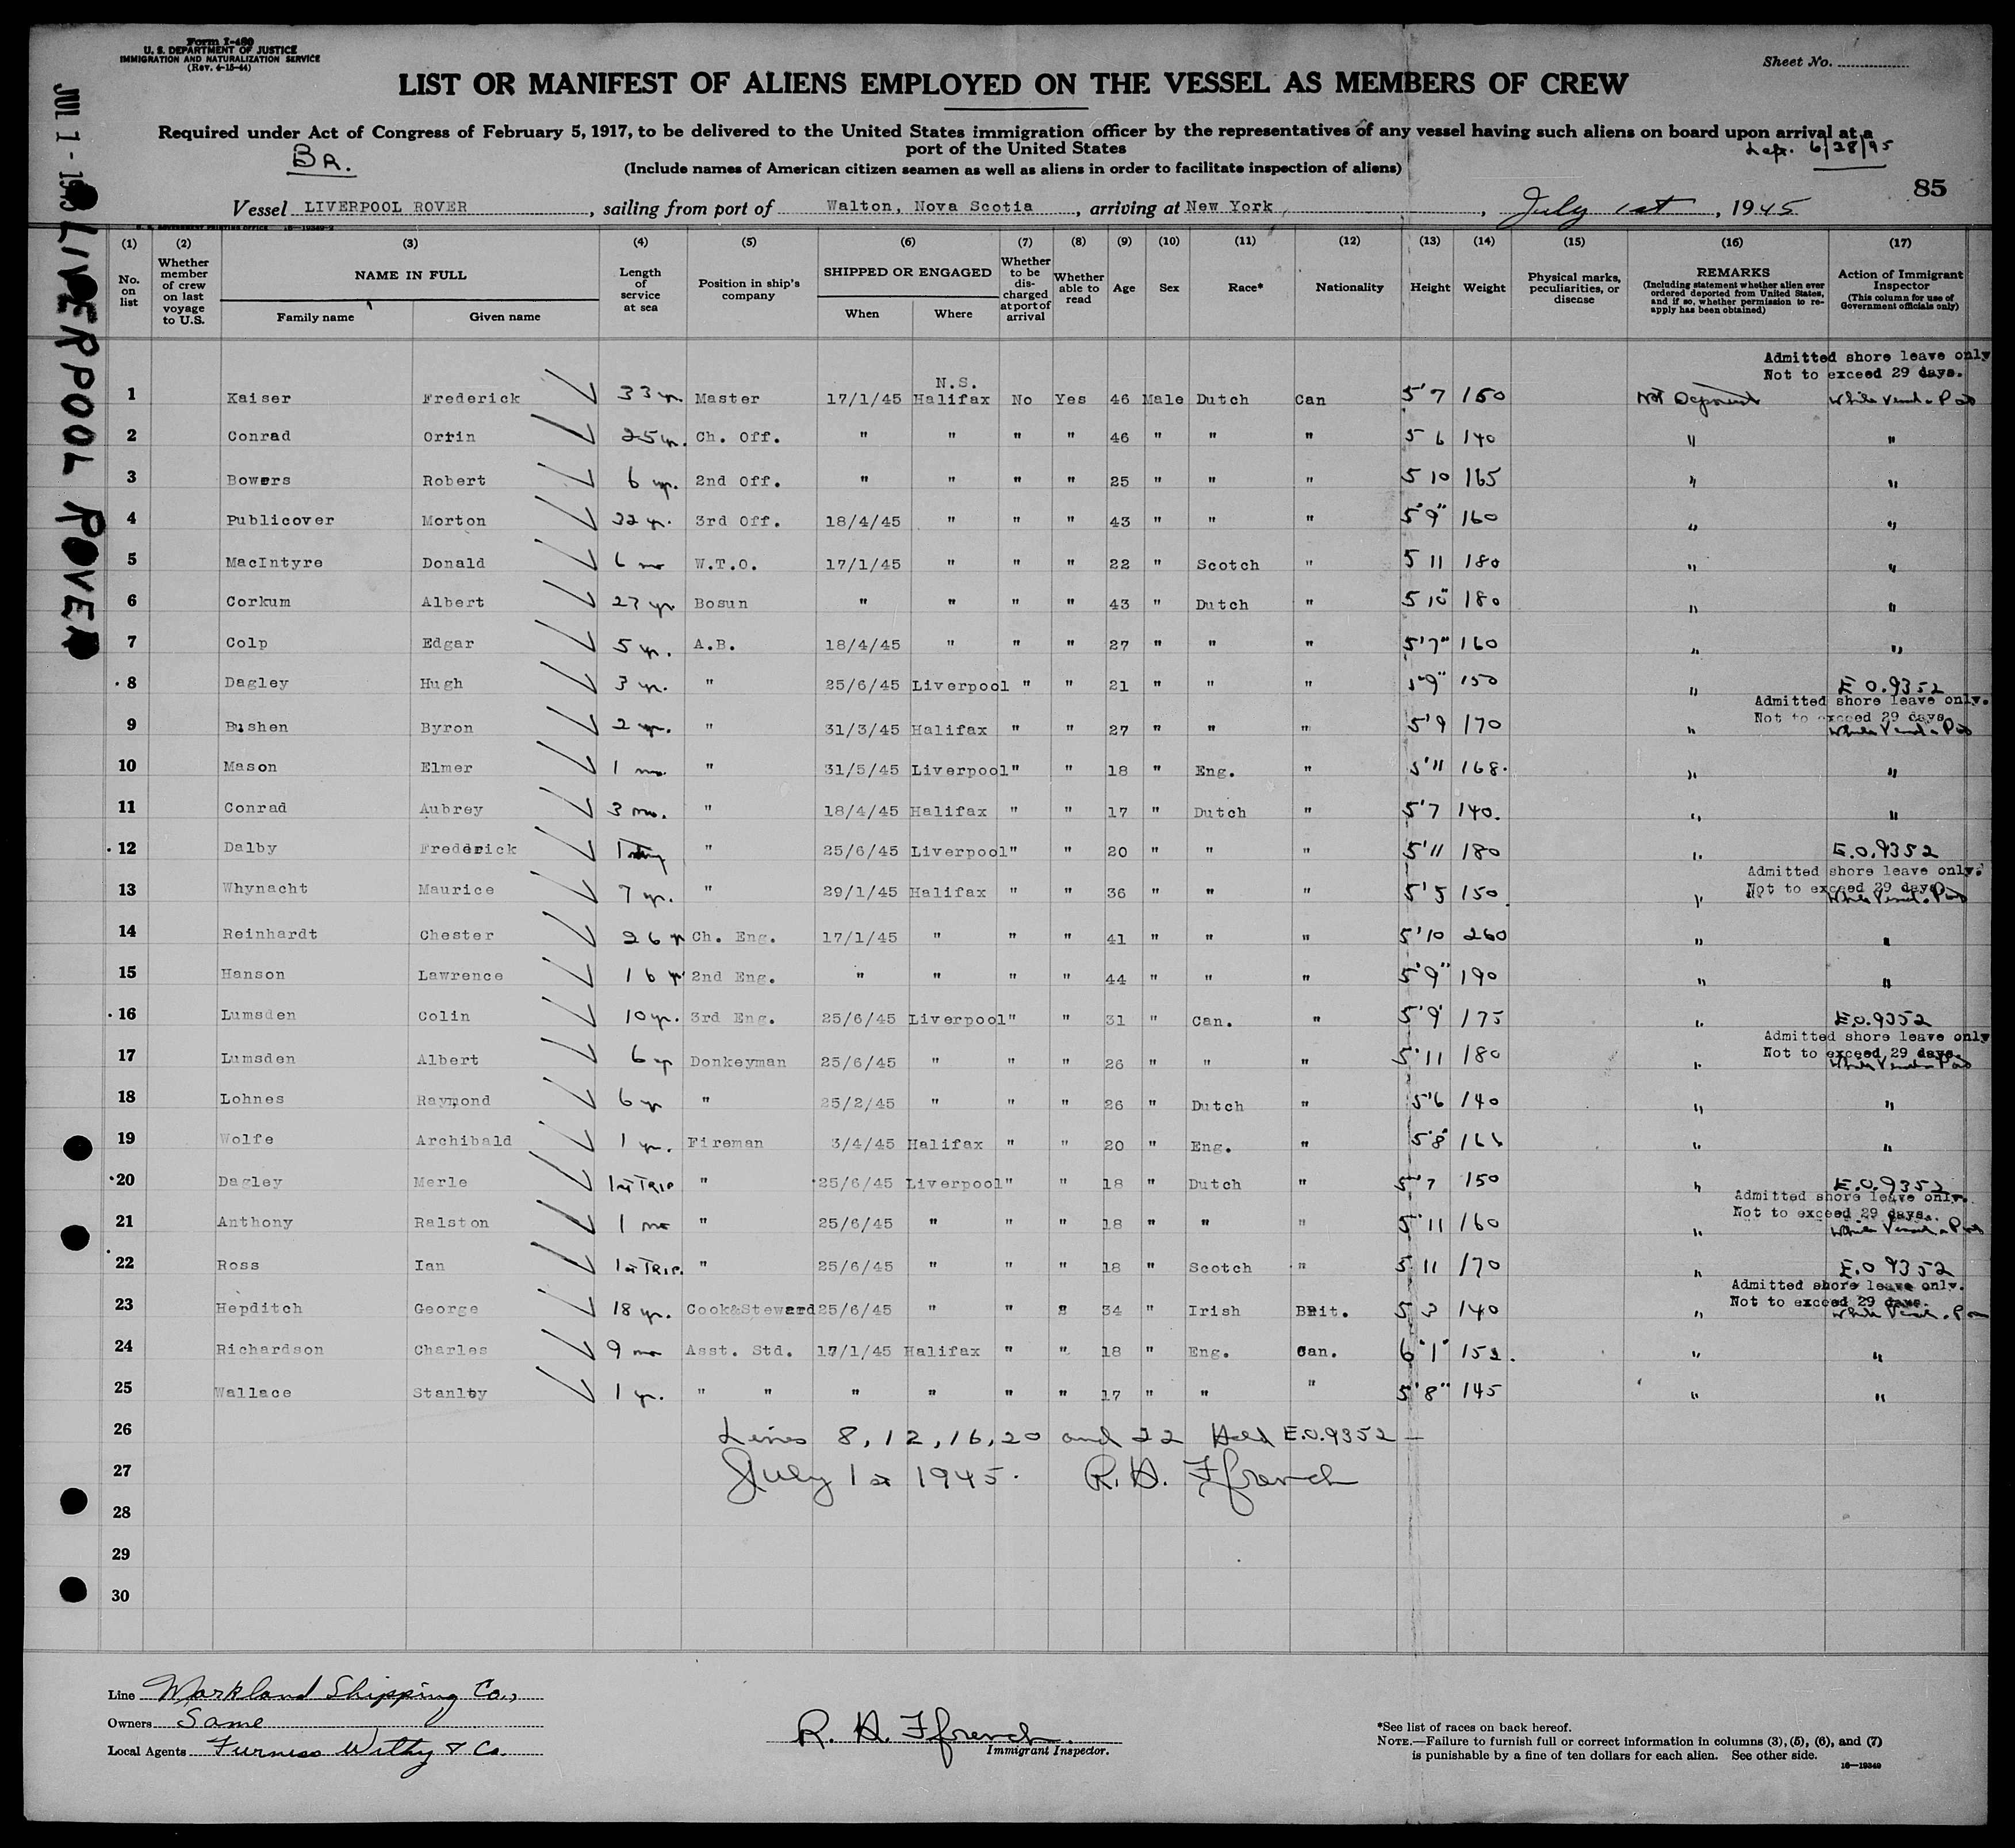 Form I-480
U. S. DEPARTMENT OF JUSTICE
IMMIGRATION AND NATURALIZATION SERVICE
(Rev. 4-15-44)
Sheet No.
LIST OR MANIFEST OF ALIENS EMPLOYED ON THE VESSEL AS MEMBERS OF CREW
Required under Act of Congress of February 5, 1917, to be delivered to the United States immigration officer by the representatives of any vessel having such aliens on board upon arrival at a
port of the United States
Br.
(Include names of American citizen seamen as well as aliens in order to facilitate inspection of aliens)
6/28/45
85
Vessel LIVERPOOL ROVER, sailing from port of Walton, Nova Scotia, arriving at New York, July 1st, 1945
LIVERPOOL ROVER
(1) (2) (3) (4) (5) (6) (7) (8) (9) (10) (11) (12) (13) (14) (15) (16) (17)
No. on list
Whether member of crew on last voyage to U.S.
NAME IN FULL
Family name
Given name
Length of service at sea
Position in ship's company
SHIPPED OR ENGAGED
When
Where
Whether to be discharged at port of arrival
Whether able to read
Age
Sex
Race*
Nationality
Height
Weight
Physical marks, peculiarities, or disease
REMARKS
(Including statement whether alien ever ordered deported from United States, and if so, whether permission to reapply has been obtained)
Action of Immigrant Inspector
(This column for use of Government officials only)
Admitted shore leave only
Not to exceed 29 days.
1 Kaiser Frederick 33 yr. Master 17/1/45 N.S. Halifax No Yes 46 Male Dutch Can 5'7 150
2 Conrad Orrin 25 yr. Ch. Off. " " " " 46 " " " 5 6 140 " "
3 Bowers Robert 6 yr. 2nd Off. " " " " 25 " " " 5 10 165 " "
4 Publicover Morton 32 yr. 3rd Off. 18/4/45 " " " 43 " " " 5'9" 160 " "
5 MacIntyre Donald 6 mo W.T.O. 17/1/45 " " " 22 " Scotch " 5 11 180 " "
6 Corkum Albert 27 yr Bosun " " " " 43 " Dutch " 5 10" 180 " "
7 Colp Edgar 5 yr. A.B. 18/4/45 " " " 27 " " " 5'7" 160 " "
8 Dagley Hugh 3 yr. " 25/6/45 Liverpool " " 21 " " " 5'9" 150 " E.O.9352
Admitted shore leave only.
Not to exceed 29 days
9 Bushen Byron 2 yr. " 31/3/45 Halifax " " 27 " " " 5'9 170 "
10 Mason Elmer 1 mo. " 31/5/45 Liverpool " " 18 " Eng. " 5'11 168. " "
11 Conrad Aubrey 3 mo. " 18/4/45 Halifax " " 17 " Dutch " 5'7 140. " "
12 Dalby Frederick " 25/6/45 Liverpool " " 20 " " " 5'11 180 " E.O.9352
Admitted shore leave only.
Not to exceed 29 days
13 Whynacht Maurice 7 yr. " 29/1/45 Halifax " " 36 " " " 5'5 150 "
14 Reinhardt Chester 26 yr Ch. Eng. 17/1/45 " " " 41 " " " 5'10 260 " "
15 Hanson Lawrence 16 yr 2nd Eng. " " " " 44 " " " 5'9" 190 " "
16 Lumsden Colin 10 yr. 3rd Eng. 25/6/45 Liverpool " " 31 " Can. " 5'9' 175 " E.O.9352
Admitted shore leave only
Not to exceed 29 days.
17 Lumsden Albert 6 yr Donkeyman 25/6/45 " " " 26 " " " 5'11 180 "
18 Lohnes Raymond 6 yr " 25/2/45 " " " 26 " Dutch " 5'6 140 " "
19 Wolfe Archibald 1 yr. Fireman 3/4/45 Halifax " " 20 " Eng. " 5'8" " "
20 Dagley Merle 1st TRIP " 25/6/45 Liverpool " " 18 " Dutch " 5'7 150 " E.O.9352
Admitted shore leave only.
Not to exceed 29 days.
21 Anthony Ralston 1 mo " 25/6/45 " " " 18 " " " 5'11 160 "
22 Ross Ian 1st TRIP. " 25/6/45 " " " 18 " Scotch " 5 11 170 " E.O 9352
Admitted shore leave only.
Not to exceed 29 days.
23 Hepditch George 18 yr. Cook&Steward 25/6/45 " " " 34 " Irish Brit. 5 3 140 "
24 Richardson Charles 9 mo Asst. Std. 17/1/45 Halifax " " 18 " Eng. Can. 6'1" 152. " "
25 Wallace Stanley 1 yr. " " " " " " 17 " " " 5'8" 145 " "
26 Lines 8, 12, 16, 20 and 22 Held E.O.9352 —
27 July 1st 1945. R. H. Ffrench
28
29
30
Line Markland Shipping Co.,
Owners Same
Local Agents Furness Withy & Co.
R. H. Ffrench
Immigrant Inspector.
*See list of races on back hereof.
NOTE.—Failure to furnish full or correct information in columns (3), (5), (6), and (7)
is punishable by a fine of ten dollars for each alien. See other side.
16—19349